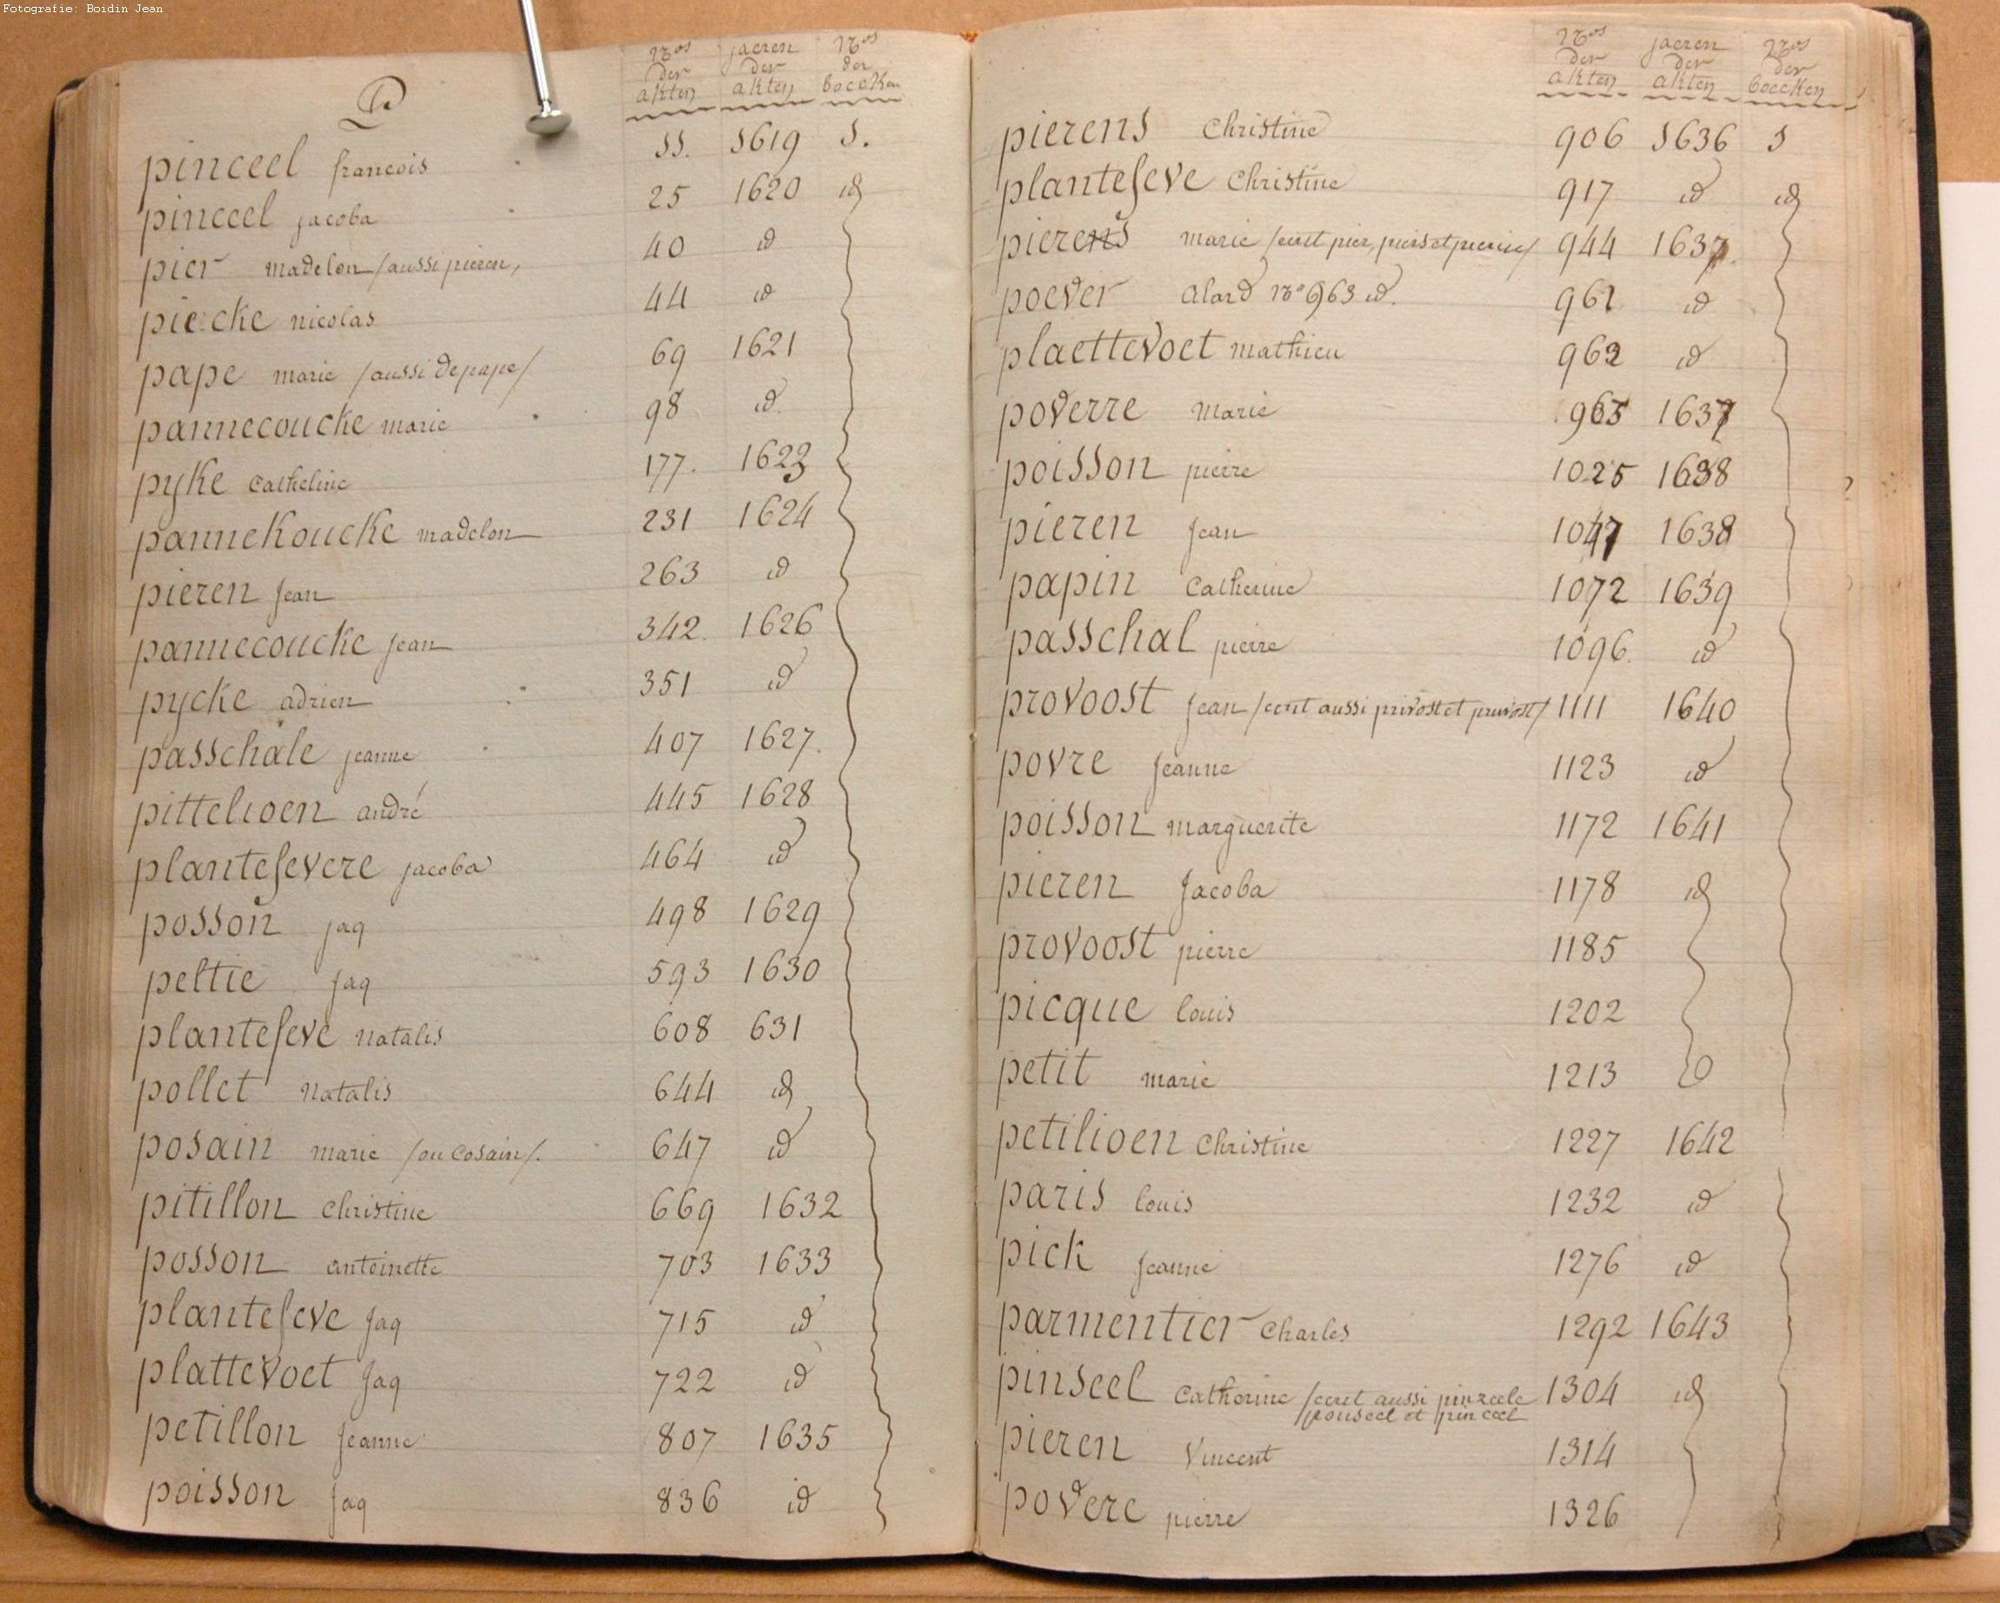 Fotografie: Boidin Jean
P
nros der akten jaeren der akten nros der boecken
pinceel francois 11. 1619 1.
pinceel jacoba 25 1620 id
pier madelon /aussi pieren, 40 id
piecke nicolas 44 id
pape marie /aussi de pape/ 69 1621
pannecoucke marie 98 id
pyke catheline 177. 1623
pannekoucke madelon 231 1624
pieren jean 263 id
pannecoucke jean 342. 1626
pycke adrien 351 id
passchale jeanne 407 1627.
pittelioen andré 445 1628
plantefevere jacoba 464 id
posson jaq 498 1629
peltie jaq 593 1630
plantefeve natalis 608 631
pollet natalis 644 id
posain marie /ou cosain/. 647 id
pitillon christine 669 1632
posson antoinette 703 1633
plantefeve jaq 715 id
plattevoet jaq 722 id
petillon jeanne 807 1635
poisson jaq 836 id
nros der akten jaeren der akten nros der boecken
pierens christine 906 1636 1
plantefeve christine 917 id id
pierens marie /ecrit pier, piers et pierine/ 944 1637.
poever alard no 963 id. 961 id
plaettevoet mathieu 962 id
poverre marie 965 1637
poisson pierre 1025 1638
pieren jean 1047 1638
papin catherine 1072 1639
passchal pierre 1096. id
provoost jean /ecrit aussi privost et pruvost/ 1111 1640
povre jeanne 1123 id
poisson marguerite 1172 1641
pieren jacoba 1178 id
provoost pierre 1185
picque louis 1202
petit marie 1213
petilioen christine 1227 1642
paris louis 1232 id
pick jeanne 1276 id
parmentier charles 1292 1643
pinseel catherine /ecrit aussi pinzeele 1304 id
pouseel et pinceel
pieren vincent 1314
povere pierre 1326